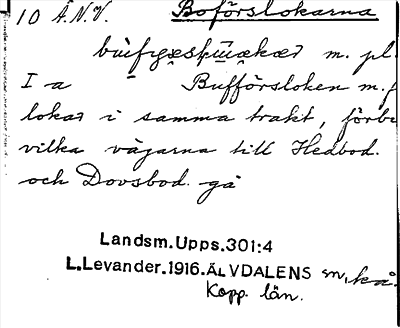 10 Å.N.V. Boförslokarna
m. pl.
I a Bufförsloken m. f
lokar i samma trakt, förbi
vilka vägarna till Hedbod.
och Dovsbod. gå
Landsm.Upps.301:4
L.Levander.1916.ÄLVDALENS sn, kå.
Kopp. län.